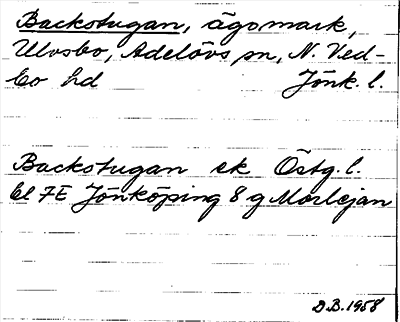 Backstugan, ägomark,
Ulvsbo, Adelövs sn, N. Ved-
bo hd Jönk. l.
Backstugan ek Östg. l.
bl 7E Jönköping 8 g Morlejan
D.B. 1958